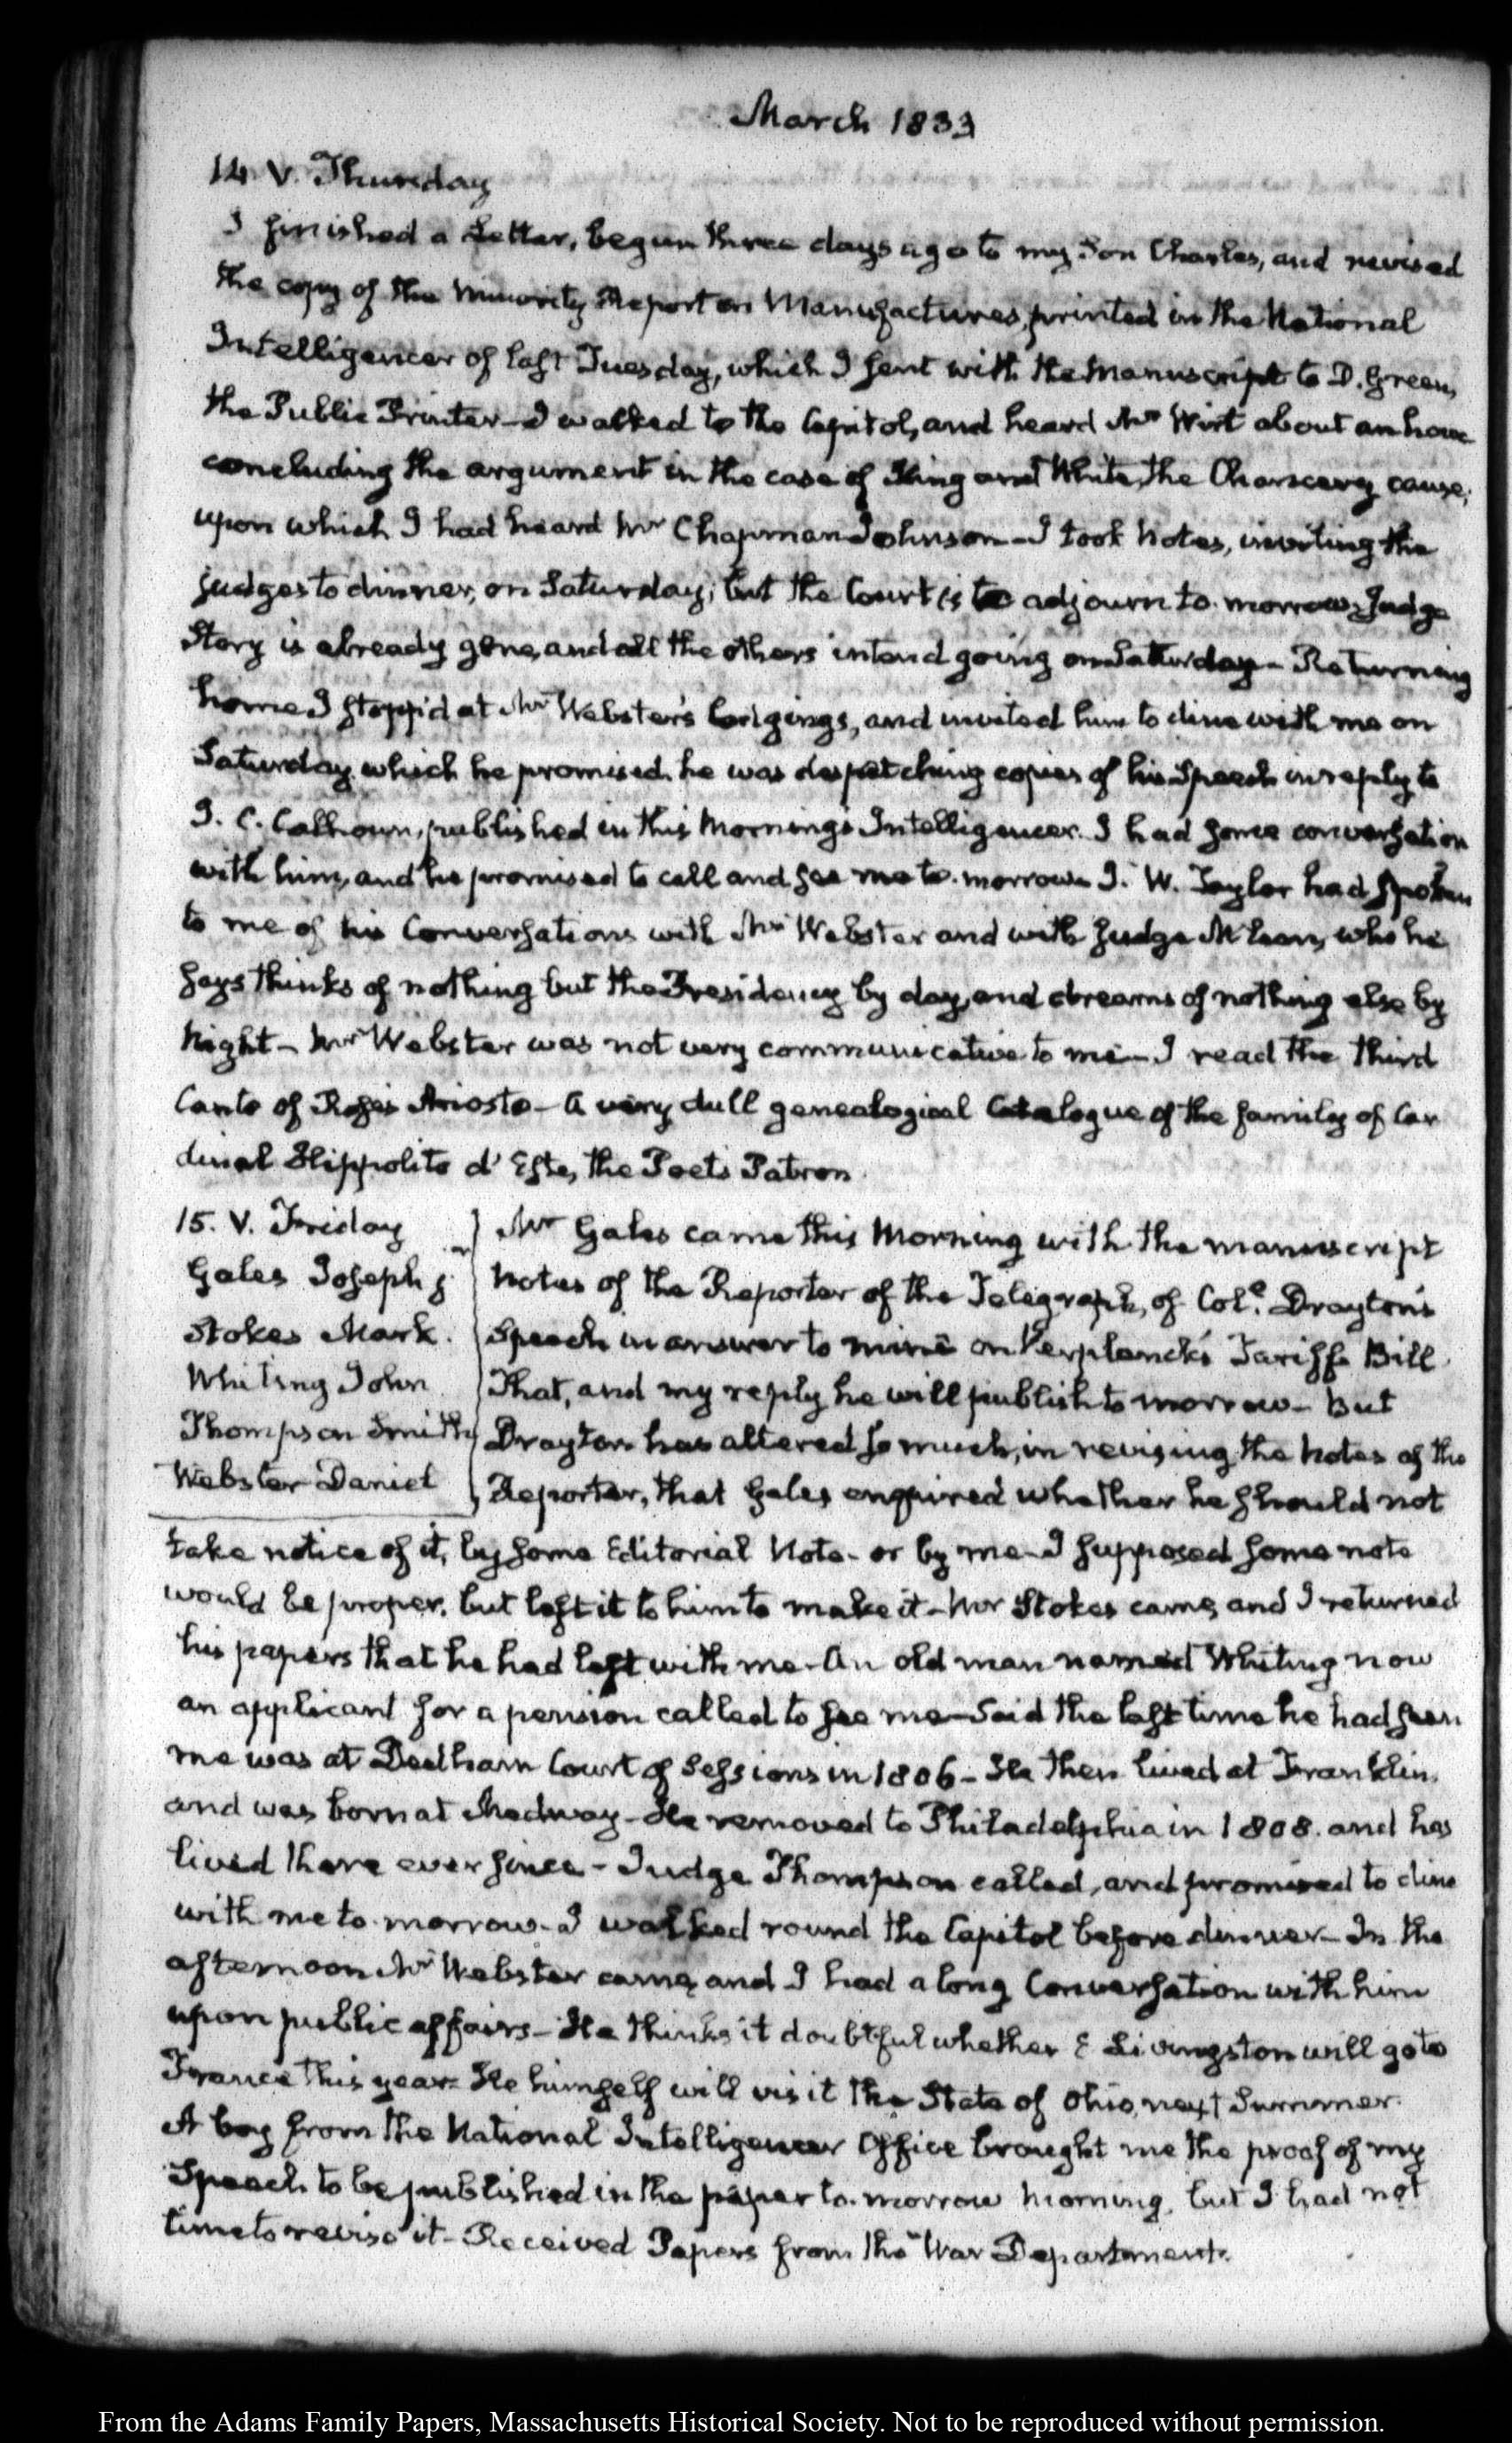 March 1833
14. V. Thursday
I finished a Letter, begun three days ago to my Son Charles, and revised
the copy of the Minority Report on Manufactures, printed in the National
Intelligencer of last Tuesday, which I sent with the Manuscript to D. Green,
the Public Printer—I walked to the Capitol, and heard Mr Wirt about an hour
concluding the argument in the case of King and White, the Chancery cause,
upon which I had heard Mr Chapman Johnson—I took Notes, inviting the
judges to dinner, on Saturday; but the Court is to adjourn to-morrow. Judge
Story is already gone, and all the others intend going on Saturday—Returning
home I stopp'd at Mr Webster's lodgings, and invited him to dine with me on
Saturday which he promised. he was despatching copies of his Speech in reply to
J. C. Calhoun, published in this Morning's Intelligencer. I had some conversation
with him, and he promised to call and see me to-morrow. J. W. Taylor had spoken
to me of his Conversations with Mr Webster and with Judge McLean, who he
says thinks of nothing but the Presidency by day, and dreams of nothing else by
Night—Mr Webster was not very communicative to me—I read the third
Canto of Ariosto—A very dull genealogical Catalogue of the family of Car
dinal Hippolito d'Este, the Poet's Patron.
15. V. Friday
Gales Joseph jr
Stokes Mark.
Whiting John
Thompson Smith
Webster Daniel
Mr Gales came this Morning with the manuscript
Notes of the Reporter of the Telegraph, of Col.o Drayton's
Speech in answer to mine on Verplanck's Tariff Bill.
That, and my reply he will publish to morrow—But
Drayton has altered so much, in revising the Notes of the
Reporter, that Gales enquired whether he should not
take notice of it, by some Editorial Note—or by me—I supposed some note
would be proper, but left it to him to make it—Mr Stokes came, and I returned
his papers that he had left with me—An old man named Whiting now
an applicant for a pension called to see me—Said the last time he had seen
me was at Dedham Court of Sessions in 1806—He then lived at Franklin,
and was born at Medway—He removed to Philadelphia in 1808. and has
lived there ever since—Judge Thompson called, and promised to dine
with me to-morrow—I walked round the Capitol before dinner—In the
afternoon Mr Webster came, and I had a long Conversation with him
upon public affairs—He thinks it doubtful whether E Livingston will go to
France this year—He himself will visit the State of Ohio, next Summer.
A boy from the National Intelligencer Office brought me the proof of my
Speech to be published in the paper to-morrow morning, but I had not
time to revise it—Received Papers from the War Department.
From the Adams Family Papers, Massachusetts Historical Society. Not to be reproduced without permission.